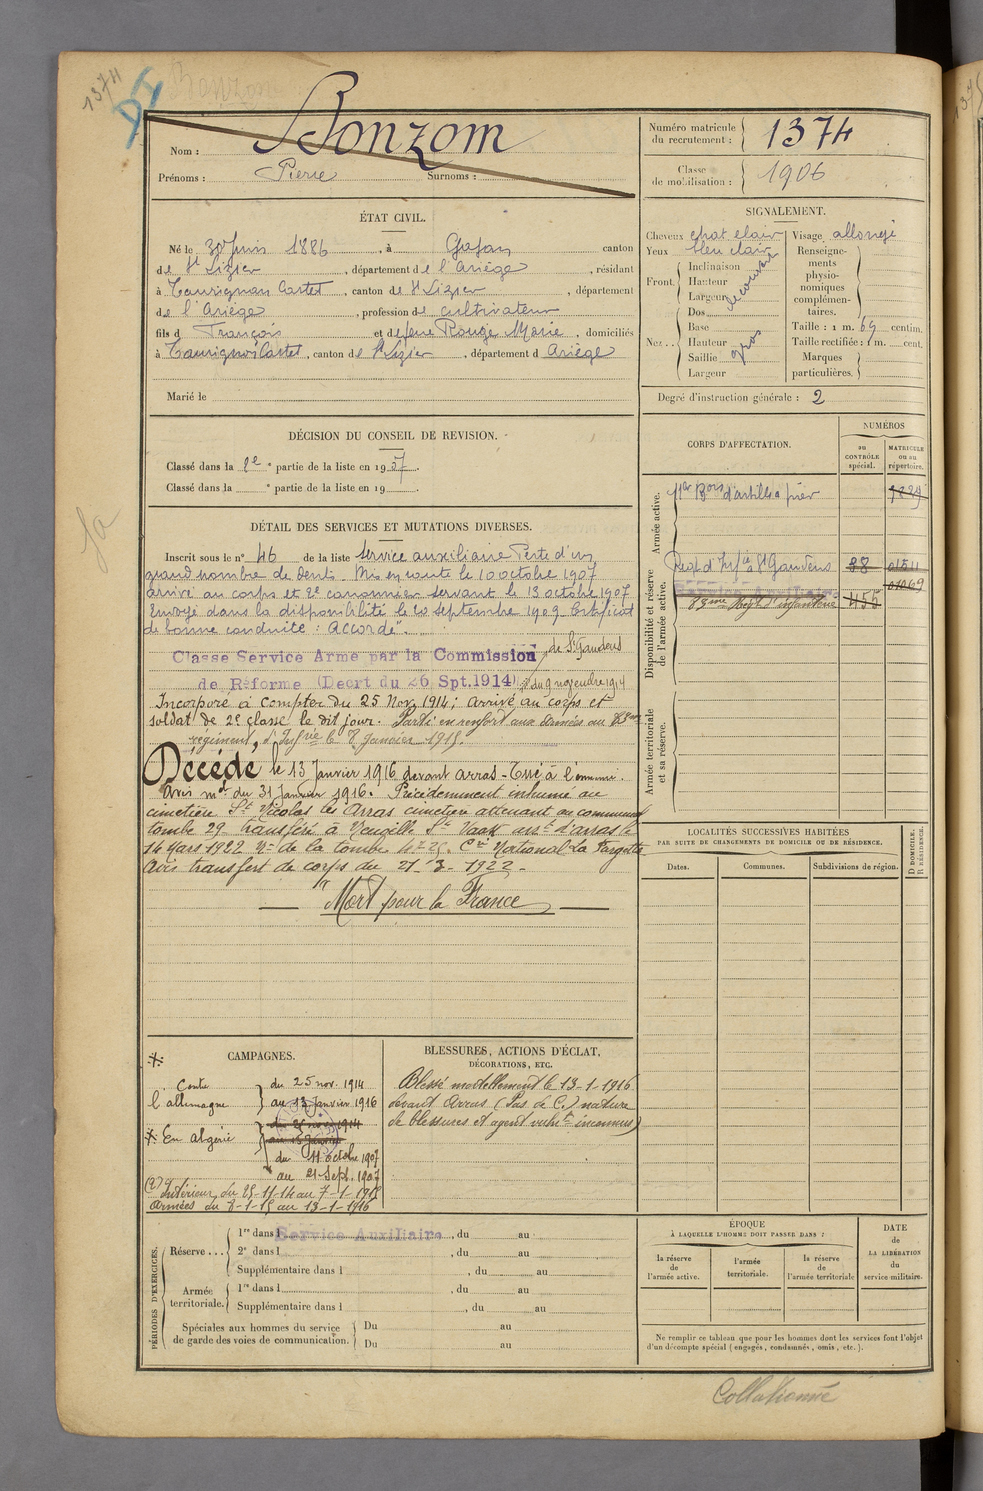 1374
Bonzom
Nom : Bonzom
Prénoms : Pierre Surnoms :
ÉTAT CIVIL.
Né le 30 Juin 1886, à Gajan canton
de St Lizier, département de l'Ariège, résidant
à Taurignan Castet, canton de St Lizier, département
de l'Ariège, profession de cultivateur
fils de François et de feue Rouge Marie, domiciliés
à Taurignan Castet, canton de St Lizier, département d Ariège
Marié le
DÉCISION DU CONSEIL DE REVISION.
Classé dans la 2e partie de la liste en 1907.
Classé dans la e partie de la liste en 19
DÉTAIL DES SERVICES ET MUTATIONS DIVERSES.
Inscrit sous le no 46 de la liste Service auxiliaire Perte d'un
grand nombre de dents. Mis en route le 10 octobre 1907
arrivé au corps et 2e canonnier servant le 13 octobre 1907
Envoyé dans la disponibilité le 20 septembre 1909. Certificat
de bonne conduite : "Accordé".
Classé Service Armé par la Commission de St Gaudens
de Réforme (Decrt du 26 Spt.1914) du 9 novembre 1914
Incorporé à compter du 25 Nov. 1914; arrivé au corps et
soldat de 2e classe le dit jour. Parti en renfort aux armées au 83me
régiment d'Infrie le 8 Janvier 1915.
Décédé le 13 Janvier 1916 devant Arras - Tué à l'ennemi.
Avis mel du 31 Janvier 1916. Précédemment inhumé au
cimetière St Nicolas les Arras cimetière attenant au communal
tombe 29 transféré à Neuville St Vaast arrt d'Arras le
14 Mars 1922 No de la tombe Cre National La Targette
Avis transfert de corps du 21-3-1922.
Mort pour la France
CAMPAGNES.
Contre
l'allemagne
du 25 nov. 1914
au 13 Janvier 1916
En Algérie
du 25 nov 1914
du 11 octobre 1907
au 21 Sept. 1907
Intérieur du 25-11-14 au 7-1-1915
Armées du 8-1-15 au 13-1-1916
BLESSURES, ACTIONS D'ÉCLAT,
DÉCORATIONS, ETC.
Blessé mortellement le 13-1-1916
devant Arras (Pas de C.) nature
de blessures et agent vulnt inconnus
PÉRIODES D'EXERCICES.
Réserve ...
1re dans l Service Auxiliaire, du au
2e dans l , du au
Supplémentaire dans l , du au
Armée
territoriale.
1re dans l , du au
Supplémentaire dans l , du au
Spéciales aux hommes du service
de garde des voies de communication.
Du au
Du au
Numéro matricule
du recrutement : 1374
Classe
de mobilisation : 1906
SIGNALEMENT.
Cheveux chat clair
Yeux bleu clair
Front
Inclinaison
Hauteur
Largeur
découvert
Nez ..
Dos
Base
Hauteur
Saillie
Largeur
gros
Visage allongé
Renseigne-
ments
physio-
nomiques
complémen-
taires.
Taille : 1 m. 69 centim.
Taille rectifiée : 1 m. cent.
Marques
particulières.
Degré d'instruction générale : 2
CORPS D'AFFECTATION.
NUMÉROS
au
CONTRÔLE
spécial.
MATRICULE
ou au
répertoire.
Armée active.
d'artillie à pied
Disponibilité et réserve
de l'armée active.
Regt d'Infie St Gaudens 88 01511
Service Auxiliaire 01069
83me Régt d'infanterie 455
Armée territoriale
et sa réserve.
LOCALITÉS SUCCESSIVES HABITÉES
PAR SUITE DE CHANGEMENTS DE DOMICILE OU DE RÉSIDENCE.
Dates.
Communes.
Subdivisions de région.
D DOMICILE.
R RÉSIDENCE.
ÉPOQUE
À LAQUELLE L'HOMME DOIT PASSER DANS :
la réserve
de
l'armée active.
l'armée
territoriale.
la réserve
de
l'armée territoriale
DATE
de
LA LIBÉRATION
du
service militaire.
Ne remplir ce tableau que pour les hommes dont les services font l'objet
d'un décompte spécial ( engagés, condamnés, omis, etc. ).
Collationné